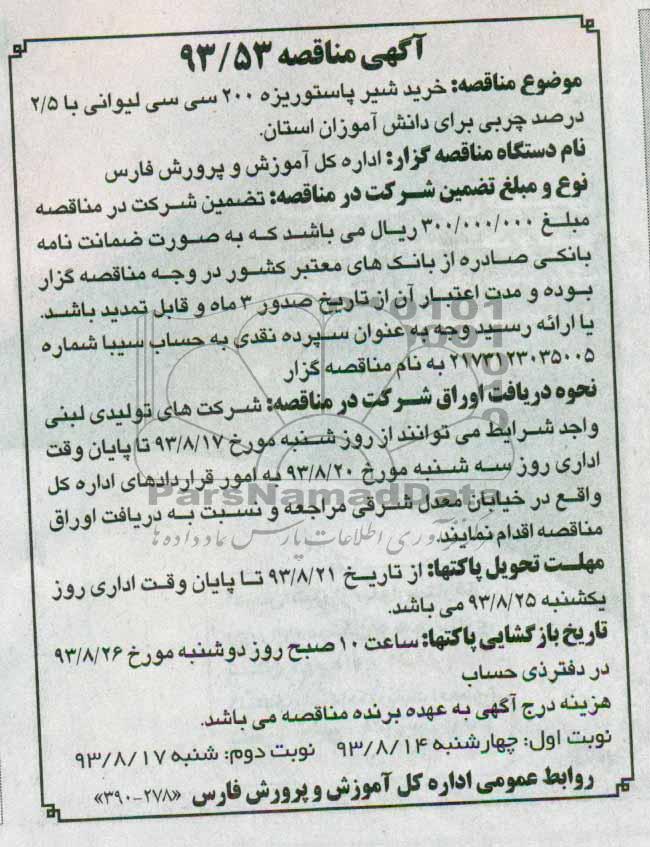 آگهی مناقصه ۹۳/۵۳
موضوع مناقصه: خرید شیر پاستوریزه ۲۰۰ سی سی لیوانی با ۲/۵
درصد چربی برای دانش آموزان استان.
نام دستگاه مناقصه گزار: اداره کل آموزش و پرورش فارس
نوع و مبلغ تضمین شرکت در مناقصه: تضمین شرکت در مناقصه
مبلغ ۳۰۰/۰۰۰/۰۰۰ ریال می باشد که به صورت ضمانت نامه
بانکی صادره از بانک های معتبر کشور در وجه مناقصه گزار
بوده و مدت اعتبار آن از تاریخ صدور ۳ ماه و قابل تمدید باشد.
یا ارائه رسید وجه به عنوان سپرده نقدی به حساب سیبا شماره
۲۱۷۳۱۲۳۰۳۵۰۰۵ به نام مناقصه گزار
نحوه دریافت اوراق شرکت در مناقصه: شرکت های تولیدی لبنی
واجد شرایط می توانند از روز شنبه مورخ ۹۳/۸/۱۷ تا پایان وقت
اداری روز سه شنبه مورخ ۹۳/۸/۲۰ به امور قراردادهای اداره کل
واقع در خیابان معدل شرقی مراجعه و نسبت به دریافت اوراق
مناقصه اقدام نمایند.
مهلت تحویل پاکتها: از تاریخ ۹۳/۸/۲۱ تا پایان وقت اداری روز
یکشنبه ۹۳/۸/۲۵ می باشد.
تاریخ بازگشایی پاکتها: ساعت ۱۰ صبح روز دوشنبه مورخ ۹۳/۸/۲۶
در دفتر ذی حساب
هزینه درج آگهی به عهده برنده مناقصه می باشد.
نوبت اول: چهارشنبه ۹۳/۸/۱۴ نوبت دوم: شنبه ۹۳/۸/۱۷
روابط عمومی اداره کل آموزش و پرورش فارس «۳۹۰-۲۷۸»
ParsNamadData